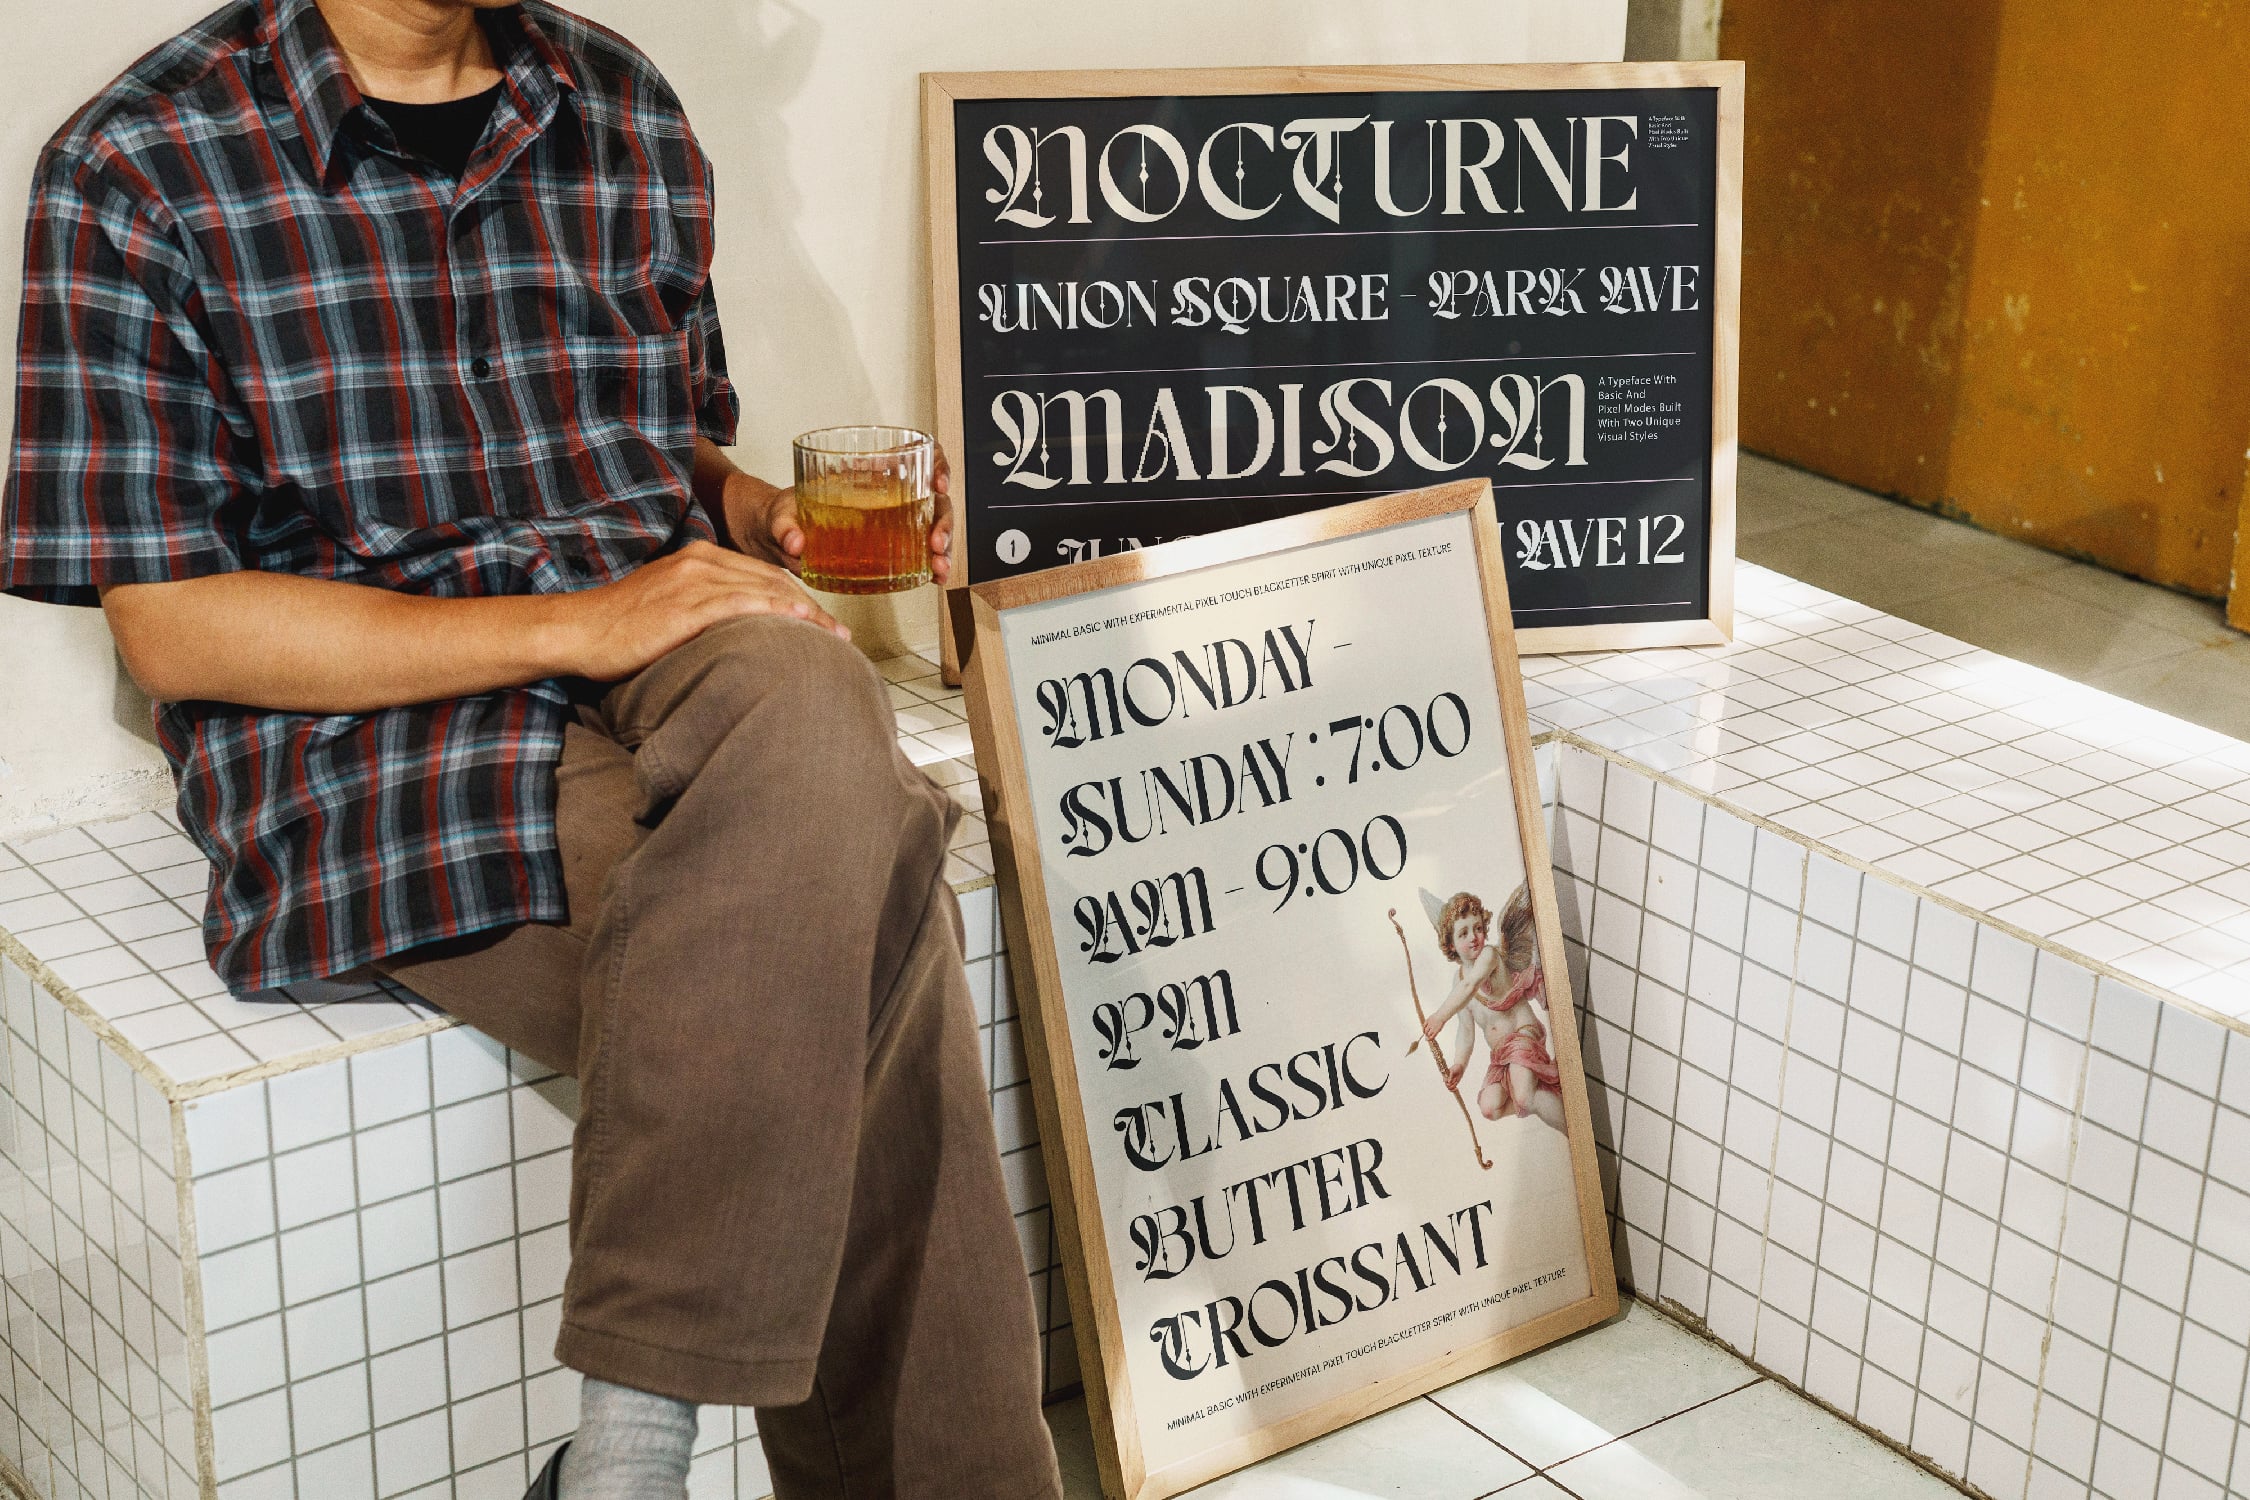 NOCTURNE
A Typeface With
Basic And
Pixel Modes Built
With Two Unique
Visual Styles
UNION SQUARE - PARK AVE
MADISON
A Typeface With
Basic And
Pixel Modes Built
With Two Unique
Visual Styles
1
AVE 12
MINIMAL BASIC WITH EXPERIMENTAL PIXEL TOUCH BLACKLETTER SPIRIT WITH UNIQUE PIXEL TEXTURE
MONDAY -
SUNDAY : 7:00
AM - 9:00
PM
CLASSIC
BUTTER
CROISSANT
MINIMAL BASIC WITH EXPERIMENTAL PIXEL TOUCH BLACKLETTER SPIRIT WITH UNIQUE PIXEL TEXTURE